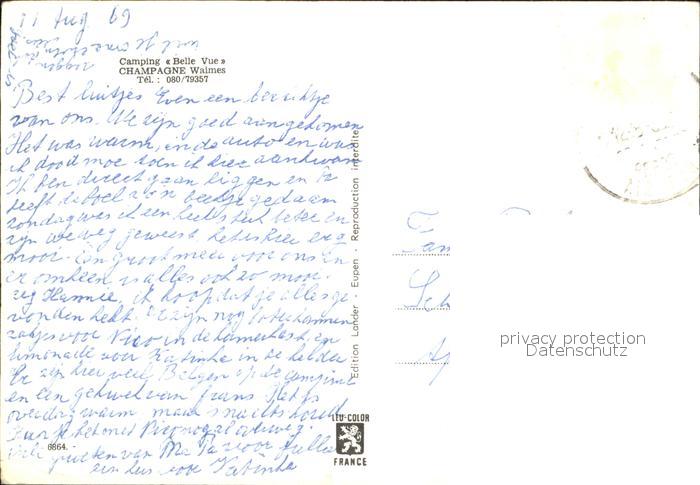 11 Aug 69
Camping « Belle Vue »
CHAMPAGNE Waimes
Tél. : 080/79357
Best luitjes Even een berichtje
van ons. We zijn goed aangekomen
Het was warm, in de auto en was
ik dood moe toen ik hier aankwam
Ik ben direct gaan liggen en
heeft de boel een beetje gedaan
zondag was ik een heel stuk beter en
zijn we weg geweest, het is hier erg
mooi. Een groot meer voor ons en
er omheen is alles ook zo mooi.
zeg Hannie, ik hoop dat je alles ge
vonden hebt. Er zijn nog boterhammen
zakjes voor Nico in de kamerkast, en
limonade voor Katinka in de kelder
Er zijn hier veel Belgen op de camping
en een gekwel van frans
overdag warm maar snachts koud
het met Nico nogal
Vele groeten van Ma Pa voor jullie
een kus voor Katinka
6864.
Edition Lander - Eupen - Reproduction interdite
LEU-COLOR
FRANCE
Fam
Sch
Ap
privacy protection
Datenschutz